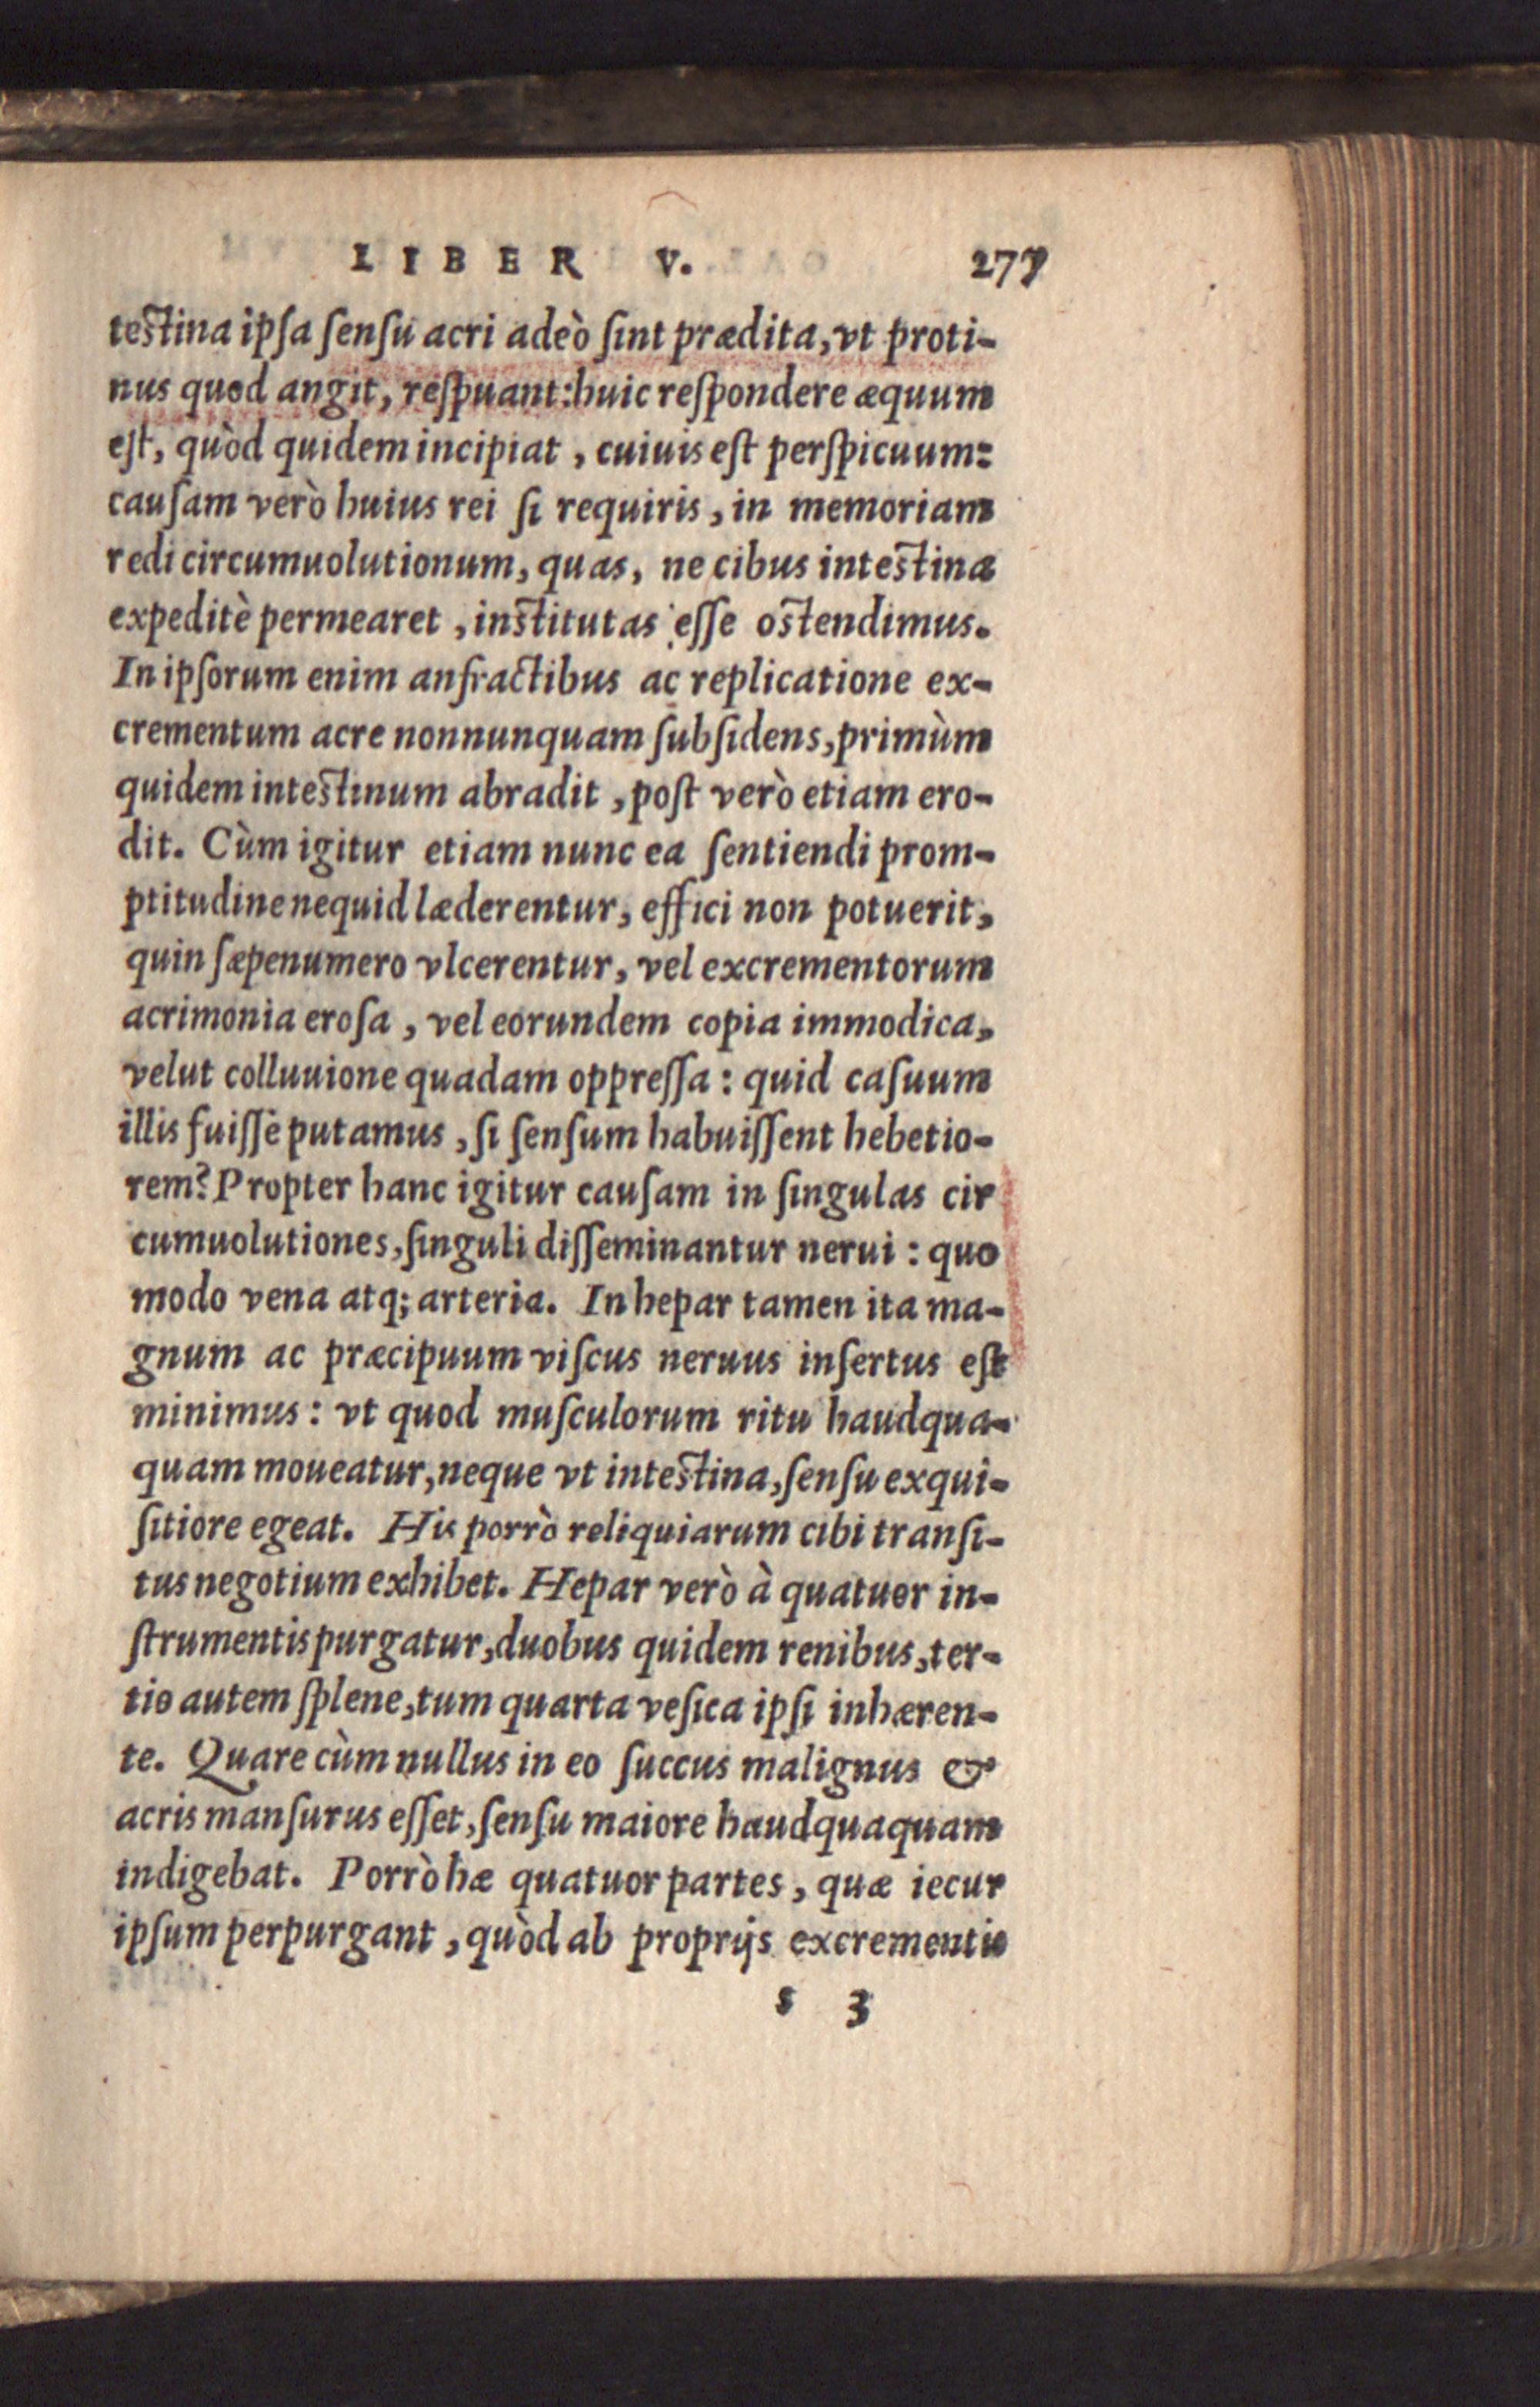 LIBER V. 277
testina ipſa ſenſu acri adeò ſint prædita, vt proti-
nus quod angit, reſpuant: huic reſpondere æquum
eſt, quòd quidem incipiat, cuiuis eſt perſpicuum:
cauſam verò huius rei ſi requiris, in memoriam
redi circumuolutionum, quas, ne cibus intestina
expeditè permearet, institutas eſſe ostendimus.
In ipſorum enim anfractibus ac replicatione ex-
crementum acre nonnunquam ſubſidens, primùm
quidem intestinum abradit, poſt verò etiam ero-
dit. Cùm igitur etiam nunc ea ſentiendi prom-
ptitudine nequid læderentur, effici non potuerit,
quin ſæpenumero vlcerentur, vel excrementorum
acrimonia eroſa, vel eorundem copia immodica,
velut colluuione quadam oppreſſa: quid caſuum
illis fuiſſe putamus, ſi ſenſum habuiſſent hebetio-
rem? Propter hanc igitur cauſam in ſingulas cir
cumuolutiones, ſinguli diſſeminantur nerui: quo
modo vena atq; arteria. In hepar tamen ita ma-
gnum ac præcipuum viſcus neruus inſertus eſt
minimus: vt quod muſculorum ritu haudqua-
quam moueatur, neque vt intestina, ſenſu exqui-
ſitiore egeat. His porrò reliquiarum cibi tranſi-
tus negotium exhibet. Hepar verò à quatuor in-
ſtrumentis purgatur, duobus quidem renibus, ter-
tio autem ſplene, tum quarta veſica ipſi inhæren-
te. Quare cùm nullus in eo ſuccus malignus &
acris manſurus eſſet, ſenſu maiore haudquaquam
indigebat. Porrò hæ quatuor partes, quæ iecur
ipſum perpurgant, quòd ab proprijs excrementis
s 3